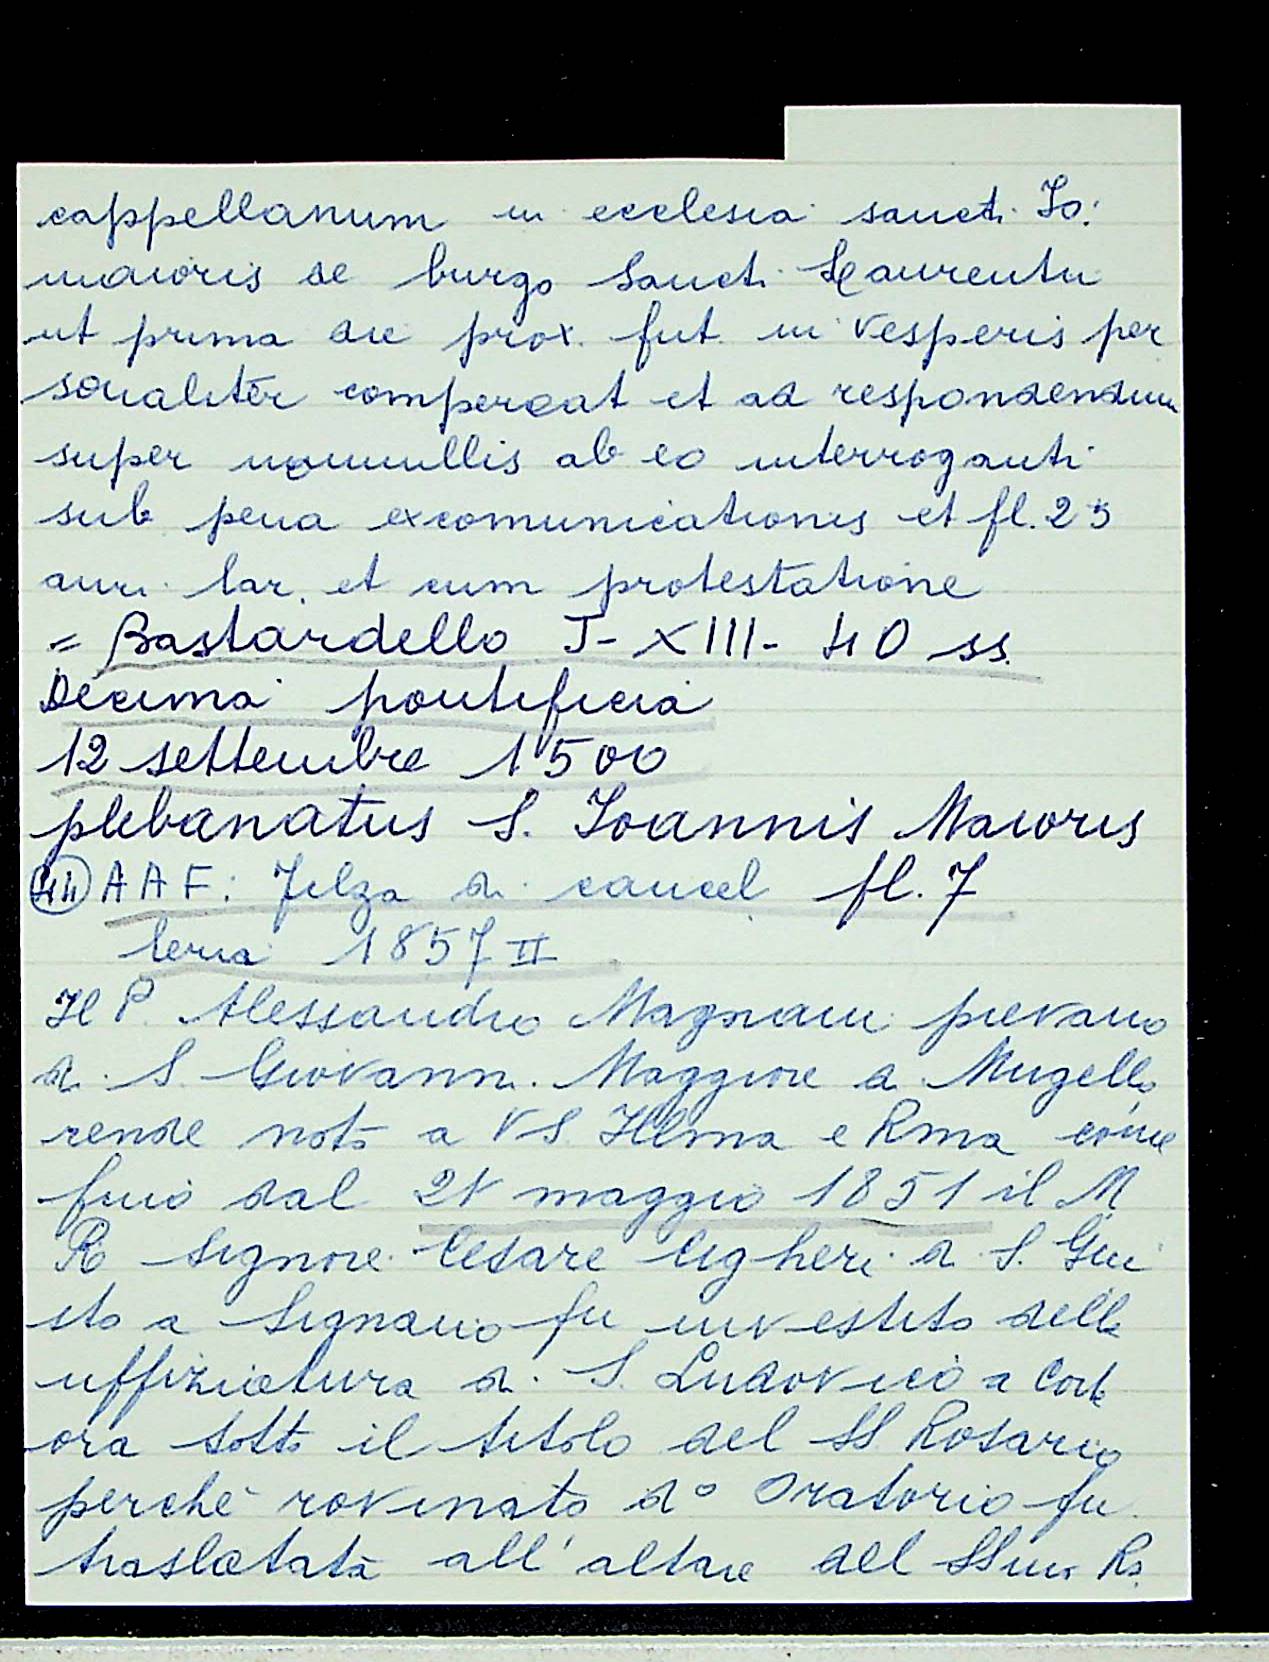 cappellanum in ecclesia sancti Io:
maioris de burgo Sancti Laurentii
ut prima die prox. fut. in vesperis per
sonaliter compareat et ad respondendum
super nonnullis ab eo interroganti
sub pena excomunicationis et fl. 25
auri lar. et cum protestatione
= Bastardello J-XIII-40 ss.
Decima pontificia
12 settembre 1500
plebanatus S. Ioannis Maioris
AAF: Filza di cancel fl. 7
leria 1857 II
Il P. Alessandro Magnani pievano
di S. Giovanni Maggiore a Mugello
rende noto a VS Illma e Rma come
fino dal maggio 1851 il M
R Signore Cesare Ligheri di S. Giu
sto a Signano fu investito della
uffiziatura di S. Ludovico a
ora sotto il titolo del SS Rosario
perché rovinato do Oratorio fu
traslatata all'altare del SSmo Ro